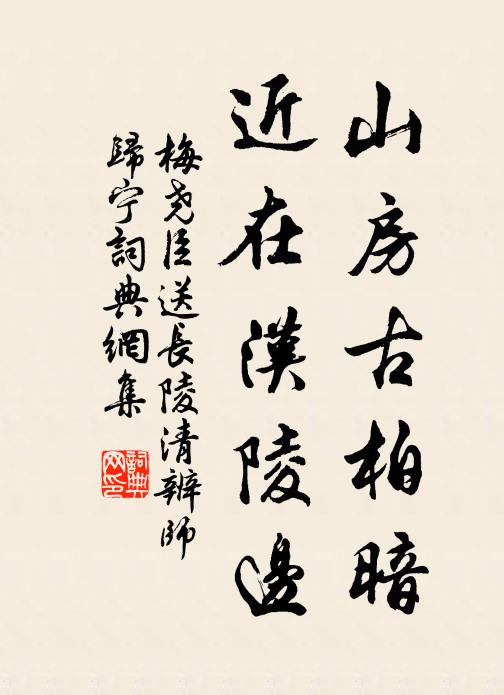 山房古柏暗
近在漢陵邊
梅尧臣送長陵清辨師
歸宁詞典網集
詞典
网印